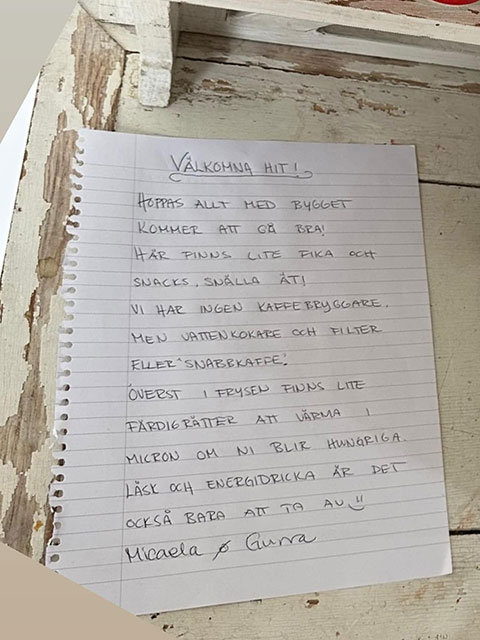 VÄLKOMNA HIT!
HOPPAS ALLT MED BYGGET
KOMMER ATT GÅ BRA!
HÄR FINNS LITE FIKA OCH
SNACKS, SNÄLLA ÄT!
VI HAR INGEN KAFFEBRYGGARE,
MEN VATTENKOKARE OCH FILTER
ELLER "SNABBKAFFE".
ÖVERST I FRYSEN FINNS LITE
FÄRDIGRÄTTER ATT VÄRMA I
MICRON OM NI BLIR HUNGRIGA.
LÄSK OCH ENERGIDRICKA ÄR DET
OCKSÅ BARA ATT TA AV
Micaela & Gurra